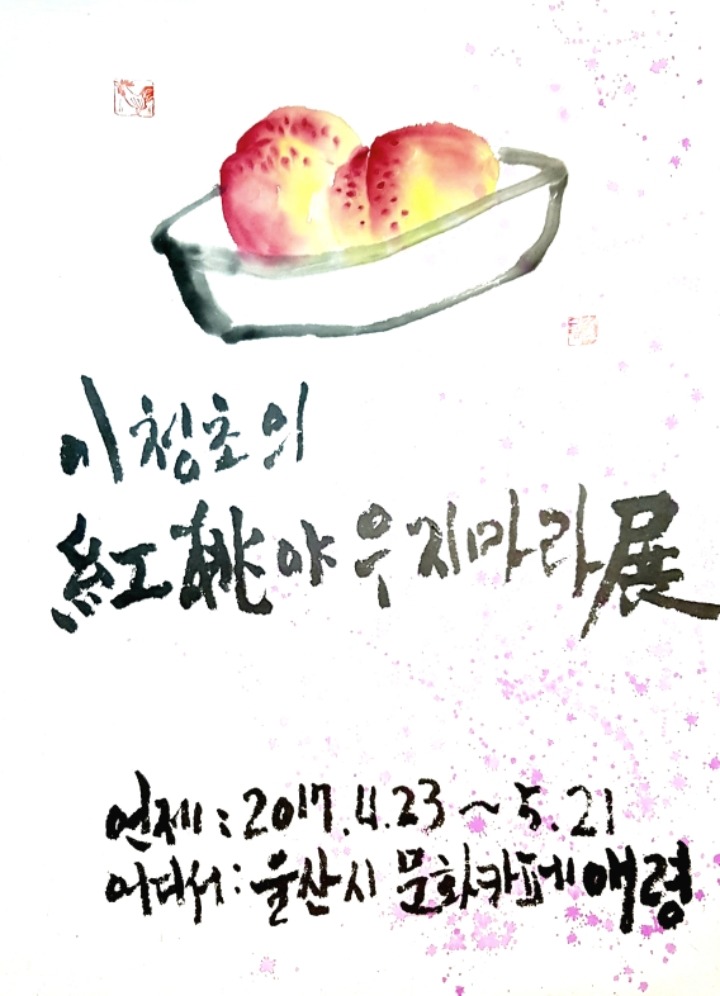 이청초의
紅桃야 우지마라展
언제 : 2017.4.23 ~ 5.21
어디서 : 울산시 문화카페 애령